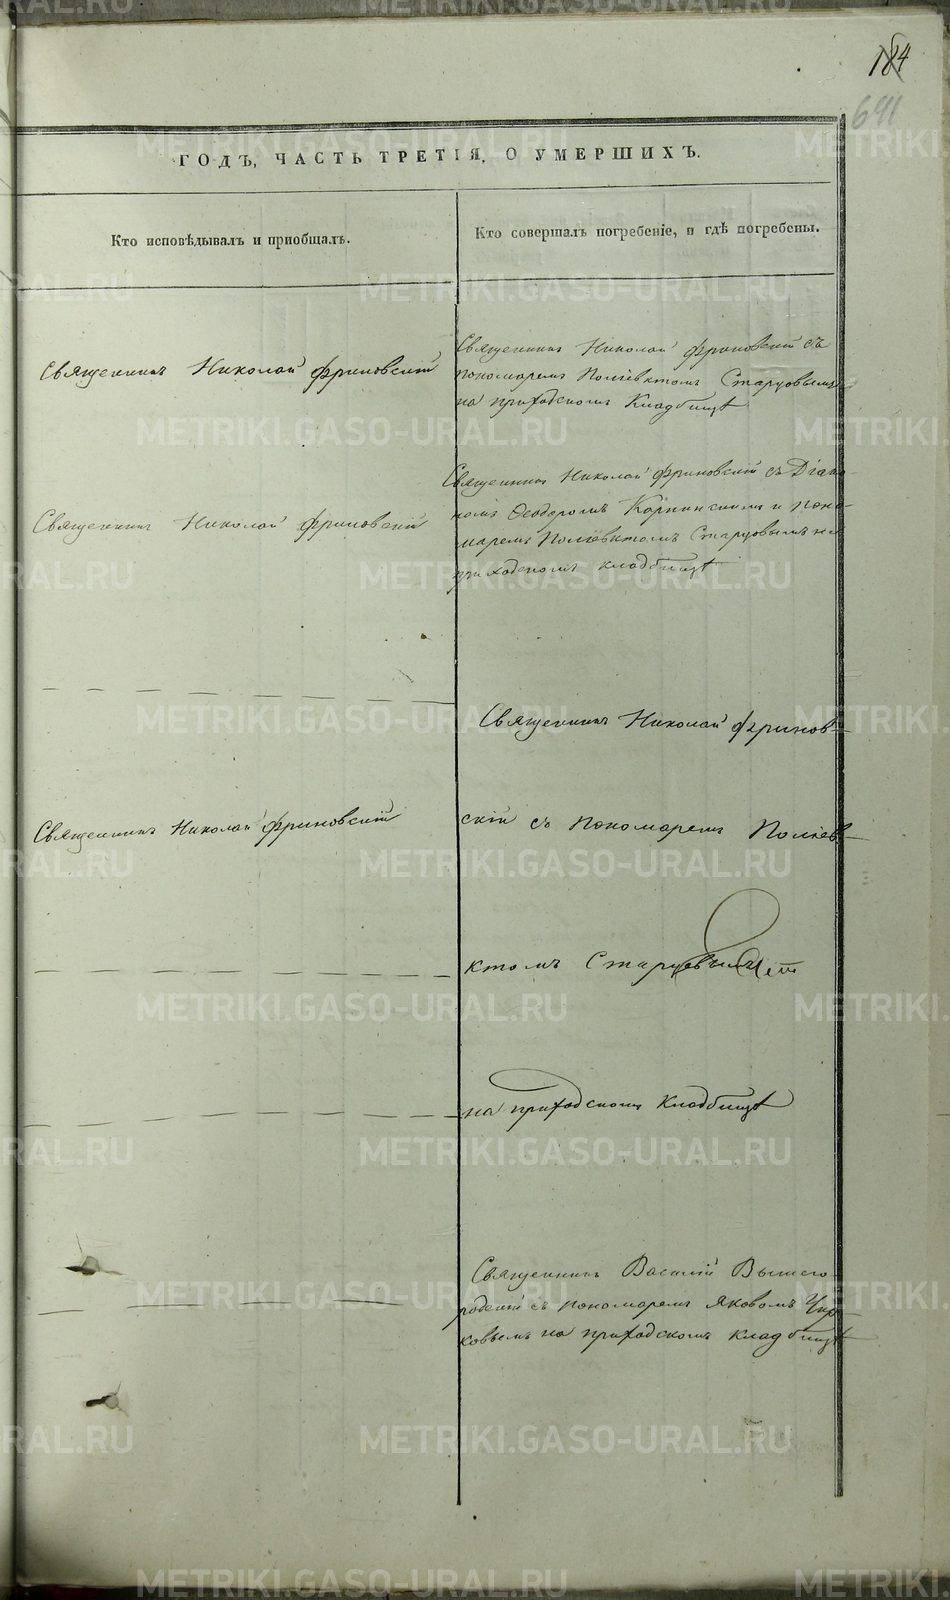 184
641
ГОДЪ, ЧАСТЬ ТРЕТІЯ, О УМЕРШИХЪ.
Кто исповѣдывалъ и пріобщалъ.
Кто совершалъ погребеніе, и гдѣ погребены.
Священникъ Николай Фриновскій
Священникъ Николай Фриновскій съ
пономаремъ Поліевктомъ Старцовымъ
на приходскомъ кладбищѣ
Священникъ Николай Фриновскій
Священникъ Николай Фриновскій съ Діако-
номъ Ѳеодоромъ и поно-
маремъ Поліевктомъ Старцовымъ на
приходскомъ кладбищѣ
Священникъ Николай Фринов-
Священникъ Николай Фриновскій
скій съ пономаремъ Поліев-
ктомъ Старцовымъ
на приходскомъ кладбищѣ
Священникъ Василій Вышего-
родскій съ пономаремъ Яковомъ
на приходскомъ кладбищѣ
METRIKI.GASO-URAL.RU